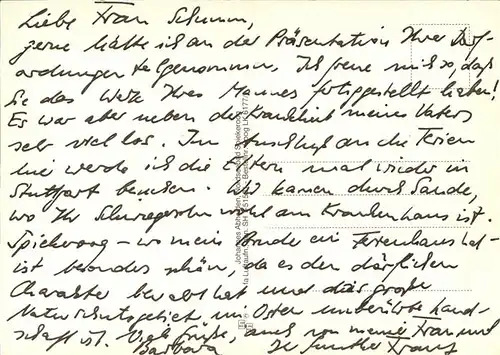 Liebe Frau Schumm,
gerne hätte ich an der Präsentation Ihrer
teilgenommen. Ich freue mich so, daß
Sie das Werk Ihres Mannes fertiggestellt haben!
Es war aber neben der Krankheit meines Vaters
sehr viel los. Im Anschluß an die Ferien
hie werde ich die Eltern mal wieder in
Stuttgart besuchen. Wir kamen durch Sande,
wo Ihr Schwiegersohn wohl am Krankenhaus ist.
Spiekeroog – wo mein Bruder ein Ferienhaus hat –
ist besonders schön, da es den dörflichen
Charakter bewahrt hat und das große
Naturschutzgebiet im Osten unberührte Land-
schaft ist. Viele Grüße, auch von meiner Frau und
Barbara Ihr Gunther Franz